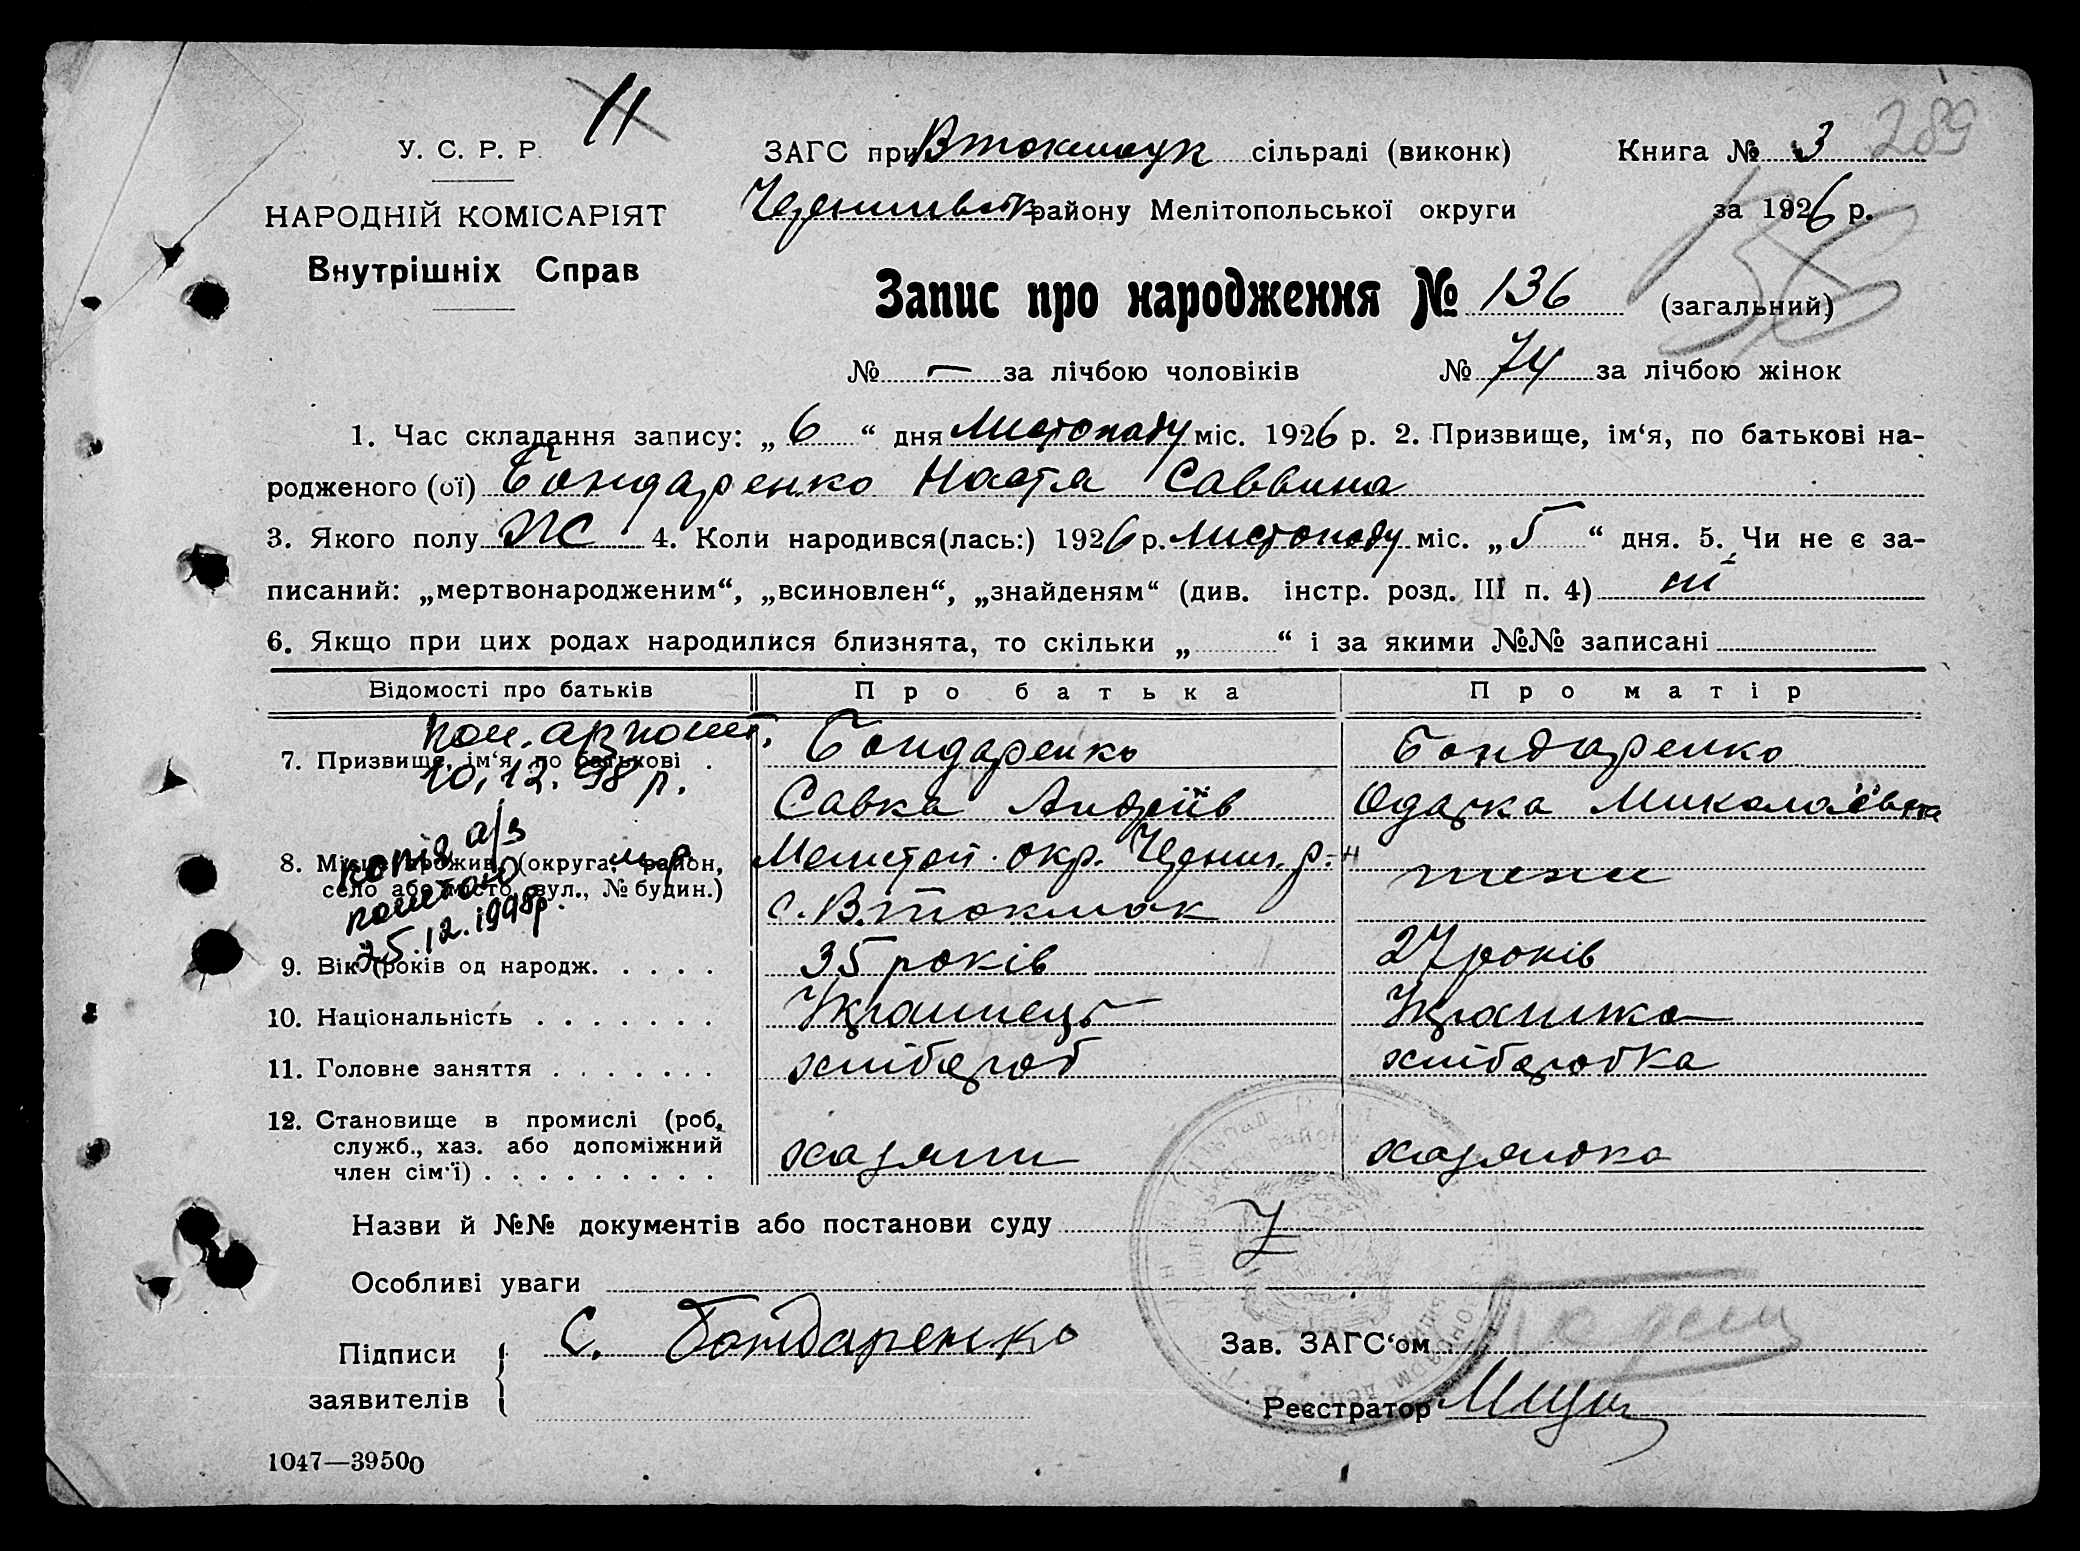 11
289
У. С. Р. Р.
НАРОДНІЙ КОМІСАРІЯТ
Внутрішніх Справ
ЗАГС при Втокмацк сільраді (виконк)
Книга № 3
району Мелітопольської округи
за 1926 р.
Запис про народження № 136 (загальний)
136
№ — за лічбою чоловіків № 74 за лічбою жінок
1. Час складання запису: „ 6 “ дня Листопаду міс. 1926 р. 2. Призвище, ім‘я, по батькові на-
родженого (ої) Бондаренко Настя Саввина
3. Якого полу жс 4. Коли народився(лась:) 1926 р. листопаду міс. „ 5 “ дня. 5. Чи не є за-
писаний: „мертвонародженим“, „всиновлен“, „знайденям“ (див. інстр. розд. III п. 4) ні
6. Якщо при цих родах народилися близнята, то скільки „ “ і за якими №№ записані
Відомості про батьків Про батька Про матір
7. Призвище, ім‘я, по батькові . Бондаренко Бондаренко
10.12.98 р.
Савка Андріїв Одарка Миколаївна
копія а/з
8. Місце прожив. (округа, район,
село або місто, вул., № будин.)
поштою
25.12.1998р.
с. В. токмак
9. Вік (років од народж. . . . . 35 років 27 років
10. Національність . . . . . . . Українець Українка
11. Головне заняття . . . . . . . хлібороб хліборобка
12. Становище в промислі (роб.,
служб., хаз. або допоміжний
член сім‘ї) . . . . . . . . . хазяїн хазяйка
Назви й №№ документів або постанови суду
Особливі уваги
Підписи
заявителів
С. Бондаренко
Зав. ЗАГС‘ом
Реєстратор
1047—39500